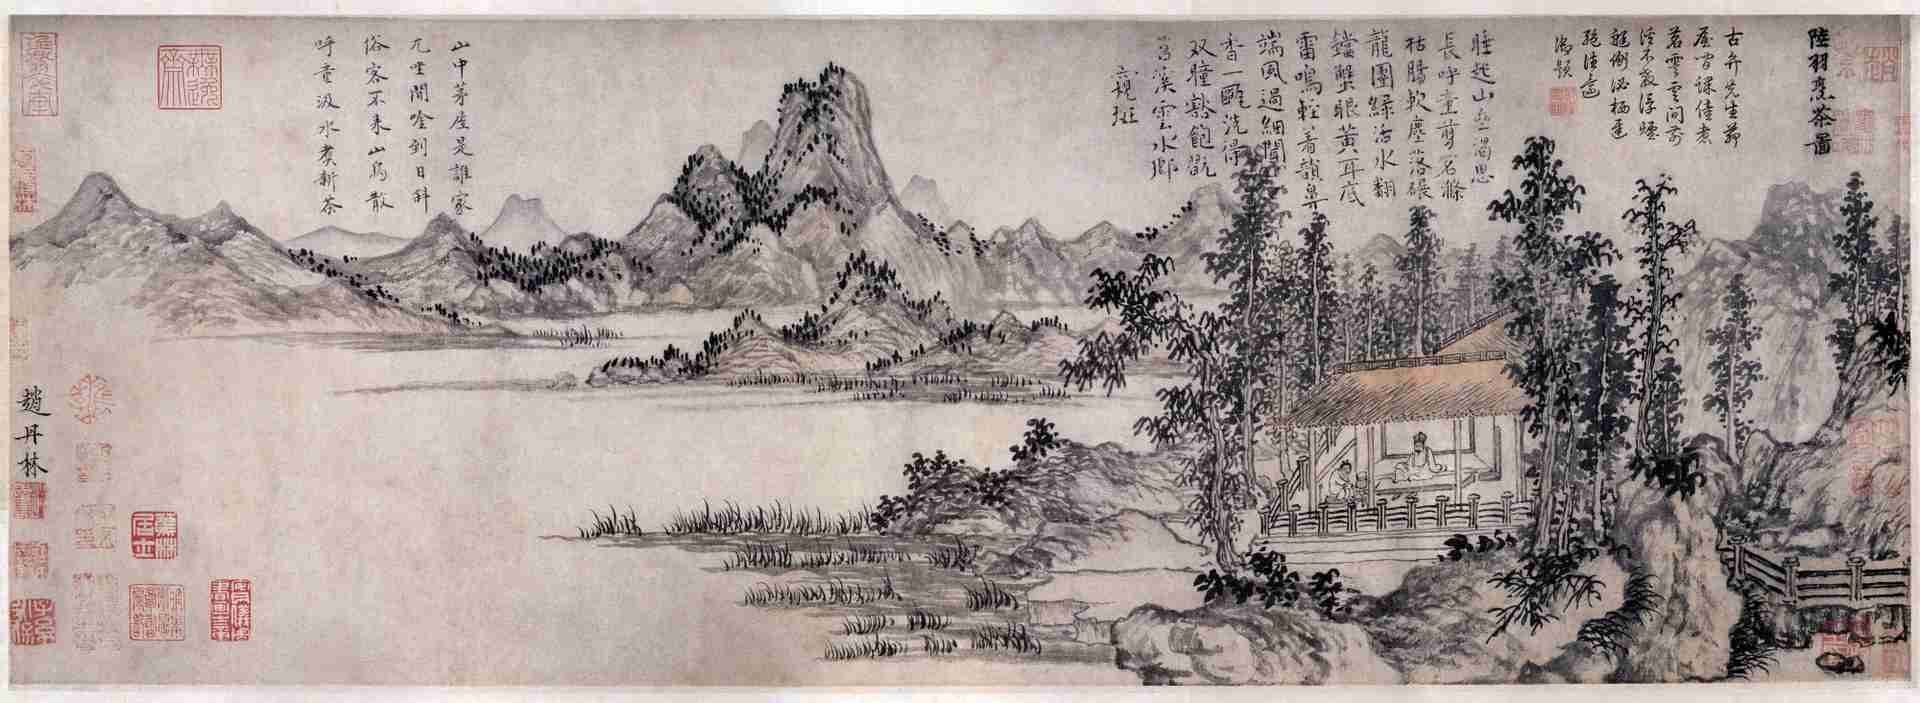 陸羽烹茶圖
古弁先生茅
屋閒課僮煮
茗雪雲間前
溪不教浮煙
艇衡泌栖遲
絶往還
御題
睡起山齋渴思
長呼童剪茗滌
枯腸軟塵落碾
龍團綠活水翻
鐺蟹眼黃耳底
雷鳴輕着韻鼻
端風過細聞
香一甌洗得
双瞳豁飽翫
苕溪雲水鄉
窺班
山中茅屋是誰家
兀坐閒唫到日斜
俗客不來山鳥散
呼童汲水煮新茶
無逸齋
趙丹林